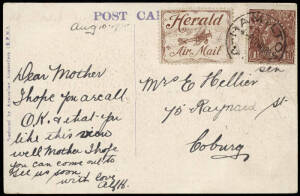 POST CARD
Aug 10
Herald
Air Mail
HAMILTON
Dear Mother
I hope you are all
O.K. & that you
like this view
well Mother I hope
you can come out to
see us soon
with love
Mrs E Hellier
sen
75 Raynard St
Coburg